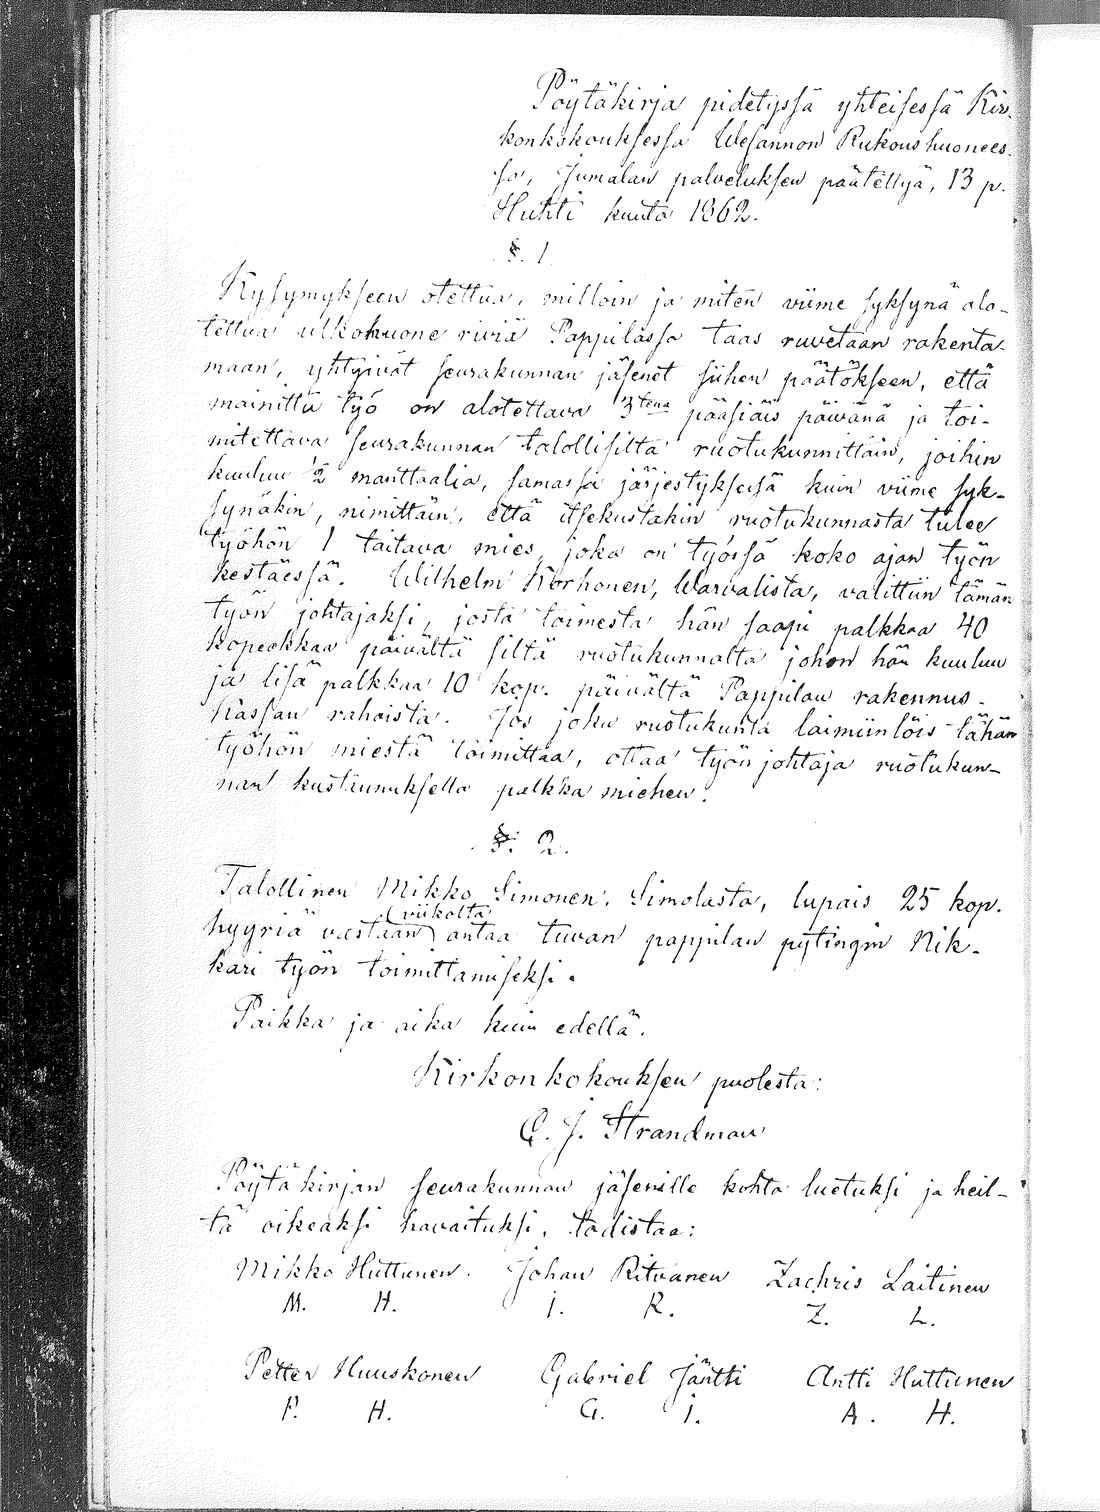 Pöytäkirja pidetyssä yhteisessä Kir-
konkokouksessa Wesannon Rukoushuonees-
sa, Jumalan palveluksen päätettyä, 13 p.
Huhti kuuta 1862.
§. 1.
Kysymykseen otettua, milloin ja miten viime syksynä alo-
tettua ulkohuone riviä Pappilassa taas ruvetaan rakenta-
maan, yhtyivät seurakunnan jäsenet siihen päätökseen, että
mainittu työ on alotettava 3tena pääsiäis päivänä ja toi-
mitettava seurakunnan talollisilta ruotukunnittain, joihin
kuuluu 1/2 manttaalia, samassa järjestyksessä kuin viime syk-
synäkin, nimittäin, että itsekustakin ruotukunnasta tulee
työhön 1 taitava mies, joka on työssä koko ajan työn
kestäessä. Wilhelm Korhonen, Warvalista, valittiin tämän
työn johtajaksi, josta toimesta hän saapi palkkaa 40
kopeekkaa päivältä siltä ruotukunnalta johon hän kuuluu
ja lisä palkkaa 10 kop. päivältä Pappilan rakennus-
kassan rahoista. Jos joku ruotukunta laimiinlöis tähän
työhön miestä toimittaa, ottaa työn johtaja ruotukun-
nan kustannuksella palkka miehen.
§. 2.
Talollinen Mikko Simonen, Simolasta, lupais 25 kop.
(viikolta)
hyyriä vastaan antaa tuvan pappilan pytingin Nik-
kari työn toimittamiseksi.
Paikka ja aika kuin edellä.
Kirkonkokouksen puolesta:
C. J. Strandman
Pöytäkirjan seurakunnan jäsenille kohta luetuksi ja heil-
tä oikeaksi havaituksi, todistaa:
Mikko Huttunen. Johan Ritvanen Zachris Laitinen
M. H. I. R. Z. L.
Petter Huuskonen Gabriel Jäntti Antti Huttunen
P. H. G. I. A. H.